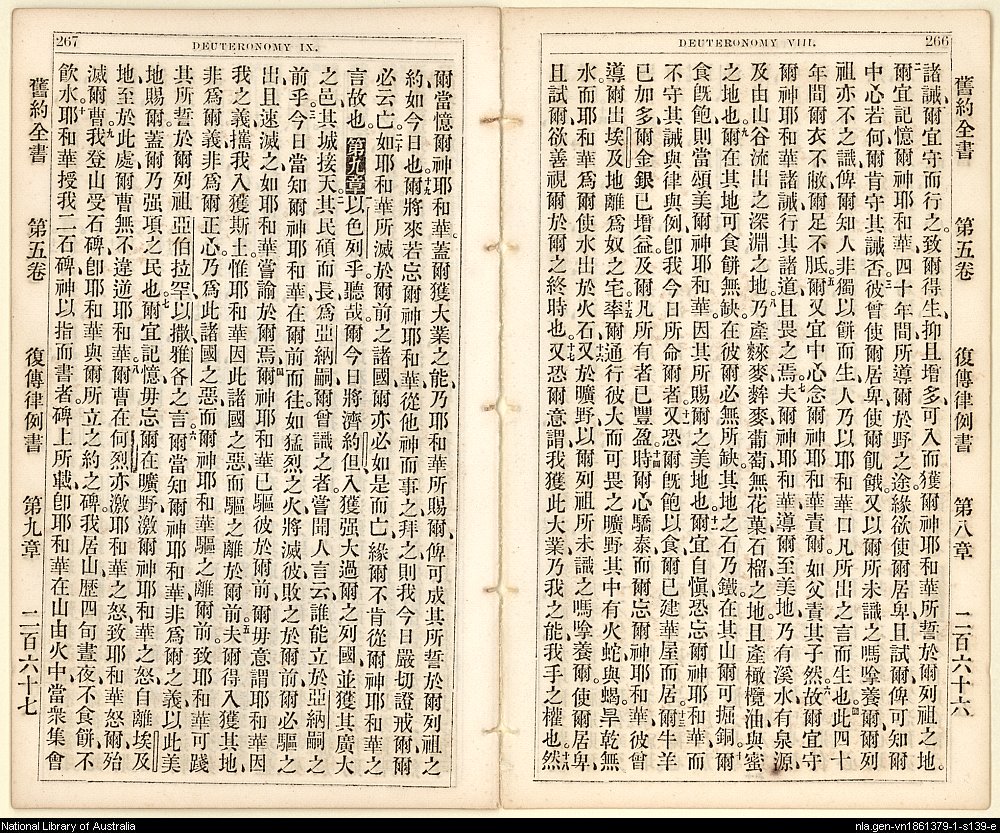 266
DEUTERONOMY VIII.
舊約全書 第五卷 復傳律例書 第八章 二百六十六
諸誡爾宜守而行之、致爾得生、抑且增多、可入而獲爾神耶和華所誓於爾列祖之地。
二爾宜記憶爾神耶和華、四十年間所導爾於野之途、緣欲使爾居卑、且試爾、俾可知爾
中心若何、爾肯守其誡否。三彼曾使爾居卑、使爾飢餓、又以爾所未識之嗎嗱養爾、爾列
祖亦不之識、俾爾知人非獨以餅而生、人乃以耶和華口凡所出之言而生也。四此四十
年間、爾衣不敝、爾足不胝。五爾又宜中心念爾神耶和華責爾、如父責其子然。六故爾宜守
爾神耶和華諸誡、行其諸道、且畏之焉。七夫爾神耶和華導爾至美地、乃有溪水有泉源、
及由山谷流出之深淵之地。八乃產麳麥麰麥葡萄無花菓石榴之地、且產橄欖油與蜜
之地也。九爾在其地可食餅無缺、在彼爾必無所缺、其地之石乃鐵、在其山爾可掘銅。十
食既飽則當頌美爾神耶和華、因其所賜爾之美地也。十一爾宜自慎、恐忘爾神耶和華、而
不守其誡與律與例、卽我今日所命爾者。十二又恐爾既飽以食、爾已建華屋而居、十三爾牛羊
已加多、爾金銀已增益、及爾凡所有者已豐盈時、十四爾心驕泰、而爾忘爾神耶和華、彼曾
導爾出埃及地、離爲奴之宅。十五率爾通行彼大而可畏之曠野、其中有火蛇與蝎、旱乾無
水、而耶和華爲爾使水出於火石。十六又於曠野以爾列祖所未識之嗎嗱養爾、使爾居卑、
且試爾、欲善視爾於爾之終時也。十七又恐爾意謂我獲此大業、乃我之能、我手之權也。十八然
267
DEUTERONOMY IX.
爾當憶爾神耶和華、蓋爾獲大業之能、乃耶和華所賜爾、俾可成其所誓於爾列祖之
約、如今日也。十九爾將來若忘爾神耶和華、從他神而事之拜之、則我今日嚴切證戒爾、爾
必云亡。二十如耶和華所滅於爾前之諸國、爾亦必如是而亡、緣爾不肯從爾神耶和華之
言故也。第九章 一以色列乎、聽哉、爾今日將濟約但、入獲强大過爾之列國、並獲其廣大
之邑、其城接天。二其民碩而長、爲亞納嗣、爾曾識之者、嘗聞人言云、誰能立於亞納嗣之
前乎。三今日當知爾神耶和華在爾前而往、如猛烈之火、將滅彼敗之於爾前、爾必驅之
出、且速滅之、如耶和華嘗諭於爾焉。四爾神耶和華已驅彼於爾前、爾毋意謂耶和華因
我之義、攜我入獲斯土、惟耶和華因此諸國之惡、而驅之離於爾前。五夫爾得入獲其地、
非爲爾義、非爲爾正心、乃爲此諸國之惡、而爾神耶和華驅之離爾前、致耶和華可踐
其所誓於爾列祖亞伯拉罕以撒雅各之言。六爾當知爾神耶和華、非爲爾之義、以此美
地賜爾、蓋爾乃强項之民也。七爾宜記憶毋忘、爾在曠野激爾神耶和華之怒、自離埃及
地至於此處、爾曹無不違逆耶和華。八爾曹在何烈亦激耶和華之怒、致耶和華怒爾、殆
滅爾曹。九我登山受石碑、卽耶和華與爾所立之約之碑、我居山歷四旬晝夜、不食餅、不
飲水。十耶和華授我二石碑、神以指而書者、碑上所載、卽耶和華在山由火中當衆集會
舊約全書 第五卷 復傳律例書 第九章 二百六十七
National Library of Australia
nla.gen-vn1861379-1-s139-e